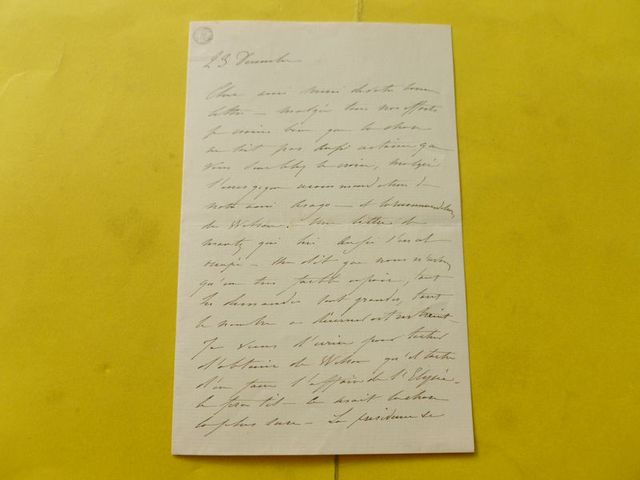 23 Décembre
Cher ami merci de votre bonne
lettre – malgré tous nos efforts
je crains bien que la chose
ne soit pas aussi certaine que
vous semblez le croire, malgré
l'énergique recommandation de
notre ami Arago – et la recommandation
de Wilson. Une lettre de
qui lui aussi s'est
occupé – me dit que nous n'avons
qu'un très faible espoir, tant
les demandes sont grandes, tant
le nombre à décerner est restreint –
Je viens d'écrire pour tâcher
d'obtenir de Wilson qu'il tâche
d'en faire l'affaire de l'Elysée –
le fera-t-il – ce serait la chose
la plus sûre – La présidence se